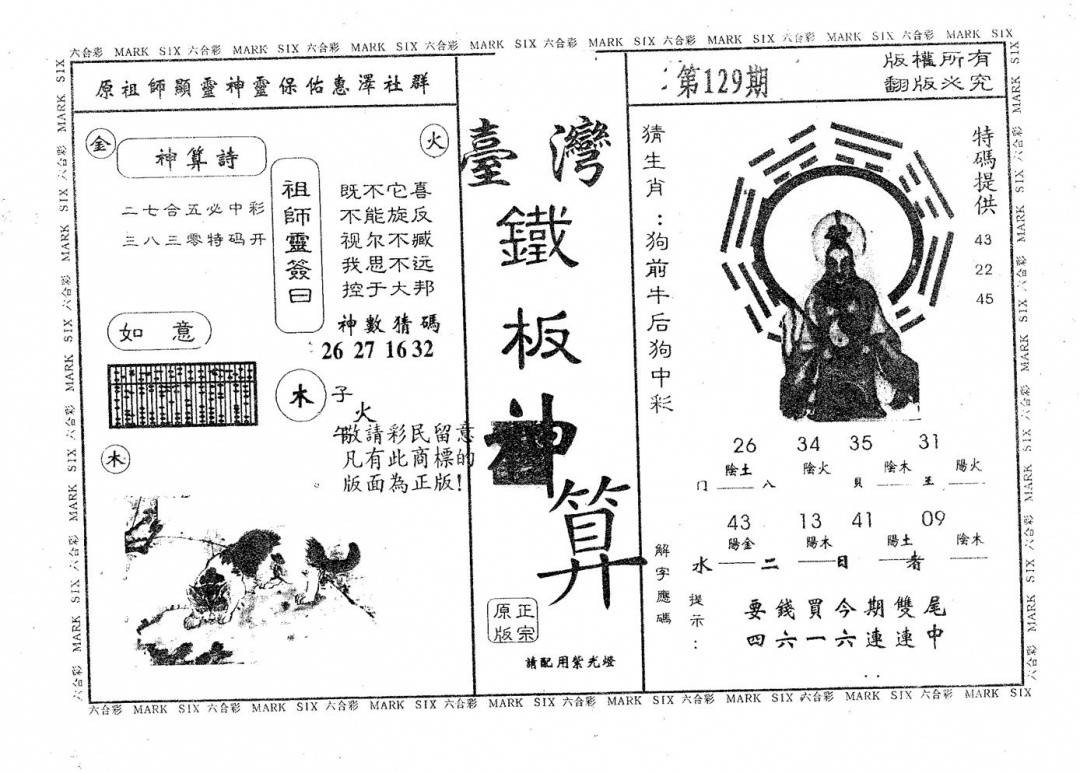 六合彩 MARK SIX 六合彩 MARK SIX 六合彩 MARK SIX 六合彩 MARK SIX 六合彩 MARK SIX 六合彩 MARK SIX 六合彩 MARK SIX 六合彩 MARK SIX
原祖師顯靈神靈保佑惠澤社群
金
神算詩
火
二七合五必中彩
三八三零特码开
祖師靈簽曰
既不它喜
不能旋反
视尔不臧
我思不远
控于大邦
神數猜碼
26 27 16 32
如意
木
子
火
午
敬請彩民留意
凡有此商標的
版面為正版!
木
臺灣
鐵
板
神
算
正宗
原版
請配用紫光燈
第129期
版權所有
翻版必究
猜生肖:狗前牛后狗中彩
特碼提供
43
22
45
26 34 35 31
陰土 陰火 陰木 陽火
门 八 貝 王
43 13 41 09
陽金 陽木 陽土 陰木
水 二 日 者
解字應碼
提示:
要錢買今期雙尾
四六一六連連中
六合彩 MARK SIX 六合彩 MARK SIX 六合彩 MARK SIX 六合彩 MARK SIX 六合彩 MARK SIX 六合彩 MARK SIX 六合彩 MARK SIX 六合彩 MARK SIX